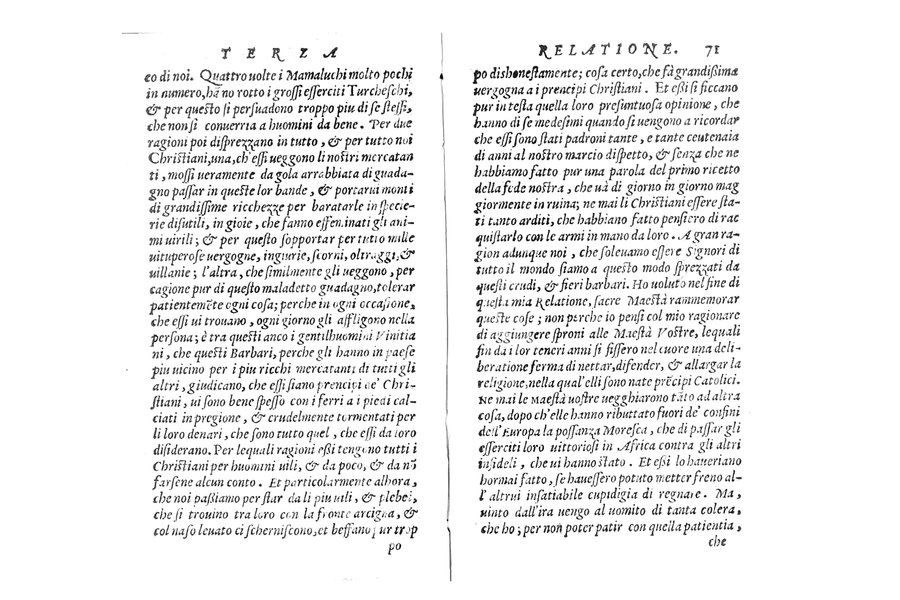 TERZA
co di noi. Quattro uolte i Mamaluchi molto pochi
in numero, hãno rotto i grossi esserciti Turcheschi,
& per questo si persuadono troppo piu di se stessi,
che non si conuerria a huomini da bene. Per due
ragioni poi disprezzano in tutto, & per tutto noi
Christiani, una, ch'essi ueggono li nostri mercatan
ti, mossi ueramente da gola arrabbiata di guada-
gno passar in queste lor bande, & portarui monti
di grandissime ricchezze per baratarle in specie-
rie disutili, in gioie, che fanno effeminati gli ani-
mi uirili; & per questo sopportar per tutto mille
uituperose uergogne, ingurie, scorni, oltraggi, &
uillanie; l'altra, che similmente gli ueggono, per
cagione pur di questo maladetto guadagno, tolerar
patientemẽte ogni cosa; perche in ogni occasione,
che essi ui trouano, ogni giorno gli affligono nella
persona; è tra questi anco i gentilhuomini Vinitia
ni, che questi Barbari, perche gli hanno in paese
piu uicino per i piu ricchi mercatanti di tutti gli
altri, giudicano, che essi siano prencipi de' Chri-
stiani, ui sono bene spesso con i ferri a i piedi cal-
ciati in pregione, & crudelmente tormentati per
li loro denari, che sono tutto quel, che essi da loro
disiderano. Per lequali ragioni essi tengono tutti i
Christiani per huomini uili, & da poco, & da nõ
farsene alcun conto. Et particolarmente alhora,
che noi passiamo per star da li piu uili, & plebei,
che si trouino tra loro con la fronte arcigna, &
col naso leuato ci scherniscono, et beffano pur trop
po
RELATIONE. 71
po dishonestamente; cosa certo, che fà grandissima
uergogna a i prencipi Christiani. Et essi si ficcano
pur in testa quella loro presuntuosa opinione, che
hanno di se medesimi quando si uengono a ricordar
che essi sono stati padroni tante, e tante centenaia
di anni al nostro marcio dispetto, & senza che ne
habbiamo fatto pur una parola del primo ricetto
della fede nostra, che uà di giorno in giorno mag
giormente in ruina; ne mai li Christiani essere sta-
ti tanto arditi, che habbiano fatto pensiero di rac
quistarlo con le armi in mano da loro. A gran ra-
gion adunque noi, che soleuamo essere Signori di
tutto il mondo siamo a questo modo sprezzati da
questi crudi, & fieri barbari. Ho uoluto nel fine di
questa mia Relatione, sacre Maestà rammemorar
queste cose; non perche io pensi col mio ragionare
di aggiungere sproni alle Maestà Vostre, lequali
fin da i lor teneri anni si fissero nel cuore una deli-
beratione ferma di nettar, difender, & allargar la
religione, nella qual'elli sono nate prẽcipi Catolici.
Ne mai le Maestà uostre uegghiarono tãto ad altra
cosa, dopo ch'elle hanno ributtato fuori de' confini
dell'Europa la possanza Moresca, che di passar gli
esserciti loro uittoriosi in Africa contra gli altri
infideli, che ui hanno stato. Et essi lo haueriano
hormai fatto, se hauessero potuto metter freno al-
l'altrui insatiabile cupidigia di regnare. Ma,
uinto dall'ira uengo al uomito di tanta colera,
che ho; per non poter patir con quella patientia,
che